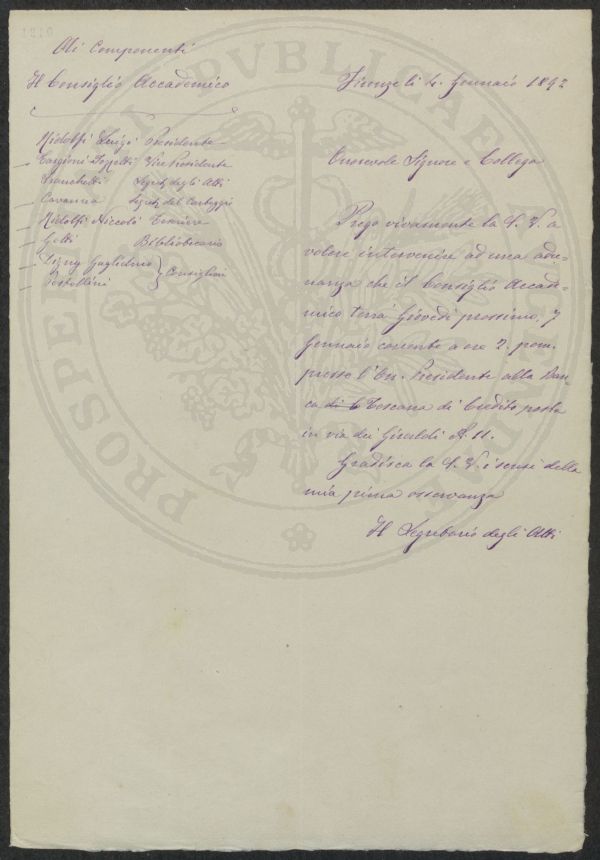 Ai Componenti
Il Consiglio Accademico
Firenze li 4. Gennaio 1892
Ridolfi Luigi Presidente
Targioni Tozzetti Vice Presidente
Franchetti Segret. degli Atti
Cavanna Segret. del Carteggio
Ridolfi Niccolò Tesoriere
Gotti Bibliotecario
Guglielmo
Consiglieri
Onorevole Signore e Collega
Prego vivamente la S. V. a
volere intervenire ad una adu-
nanza che il Consiglio Accade-
mico terrà Giovedì prossimo, 7
Gennaio corrente a ore 2. pom.
presso l'On. Presidente alla Ban-
ca Toscana di Credito posta
in via dei Giraldi N. 11.
Gradisca la S. V. i sensi della
mia piena osservanza
Il Segretario degli Atti
PROSPERITATI PVBLICAE AVGENDAE